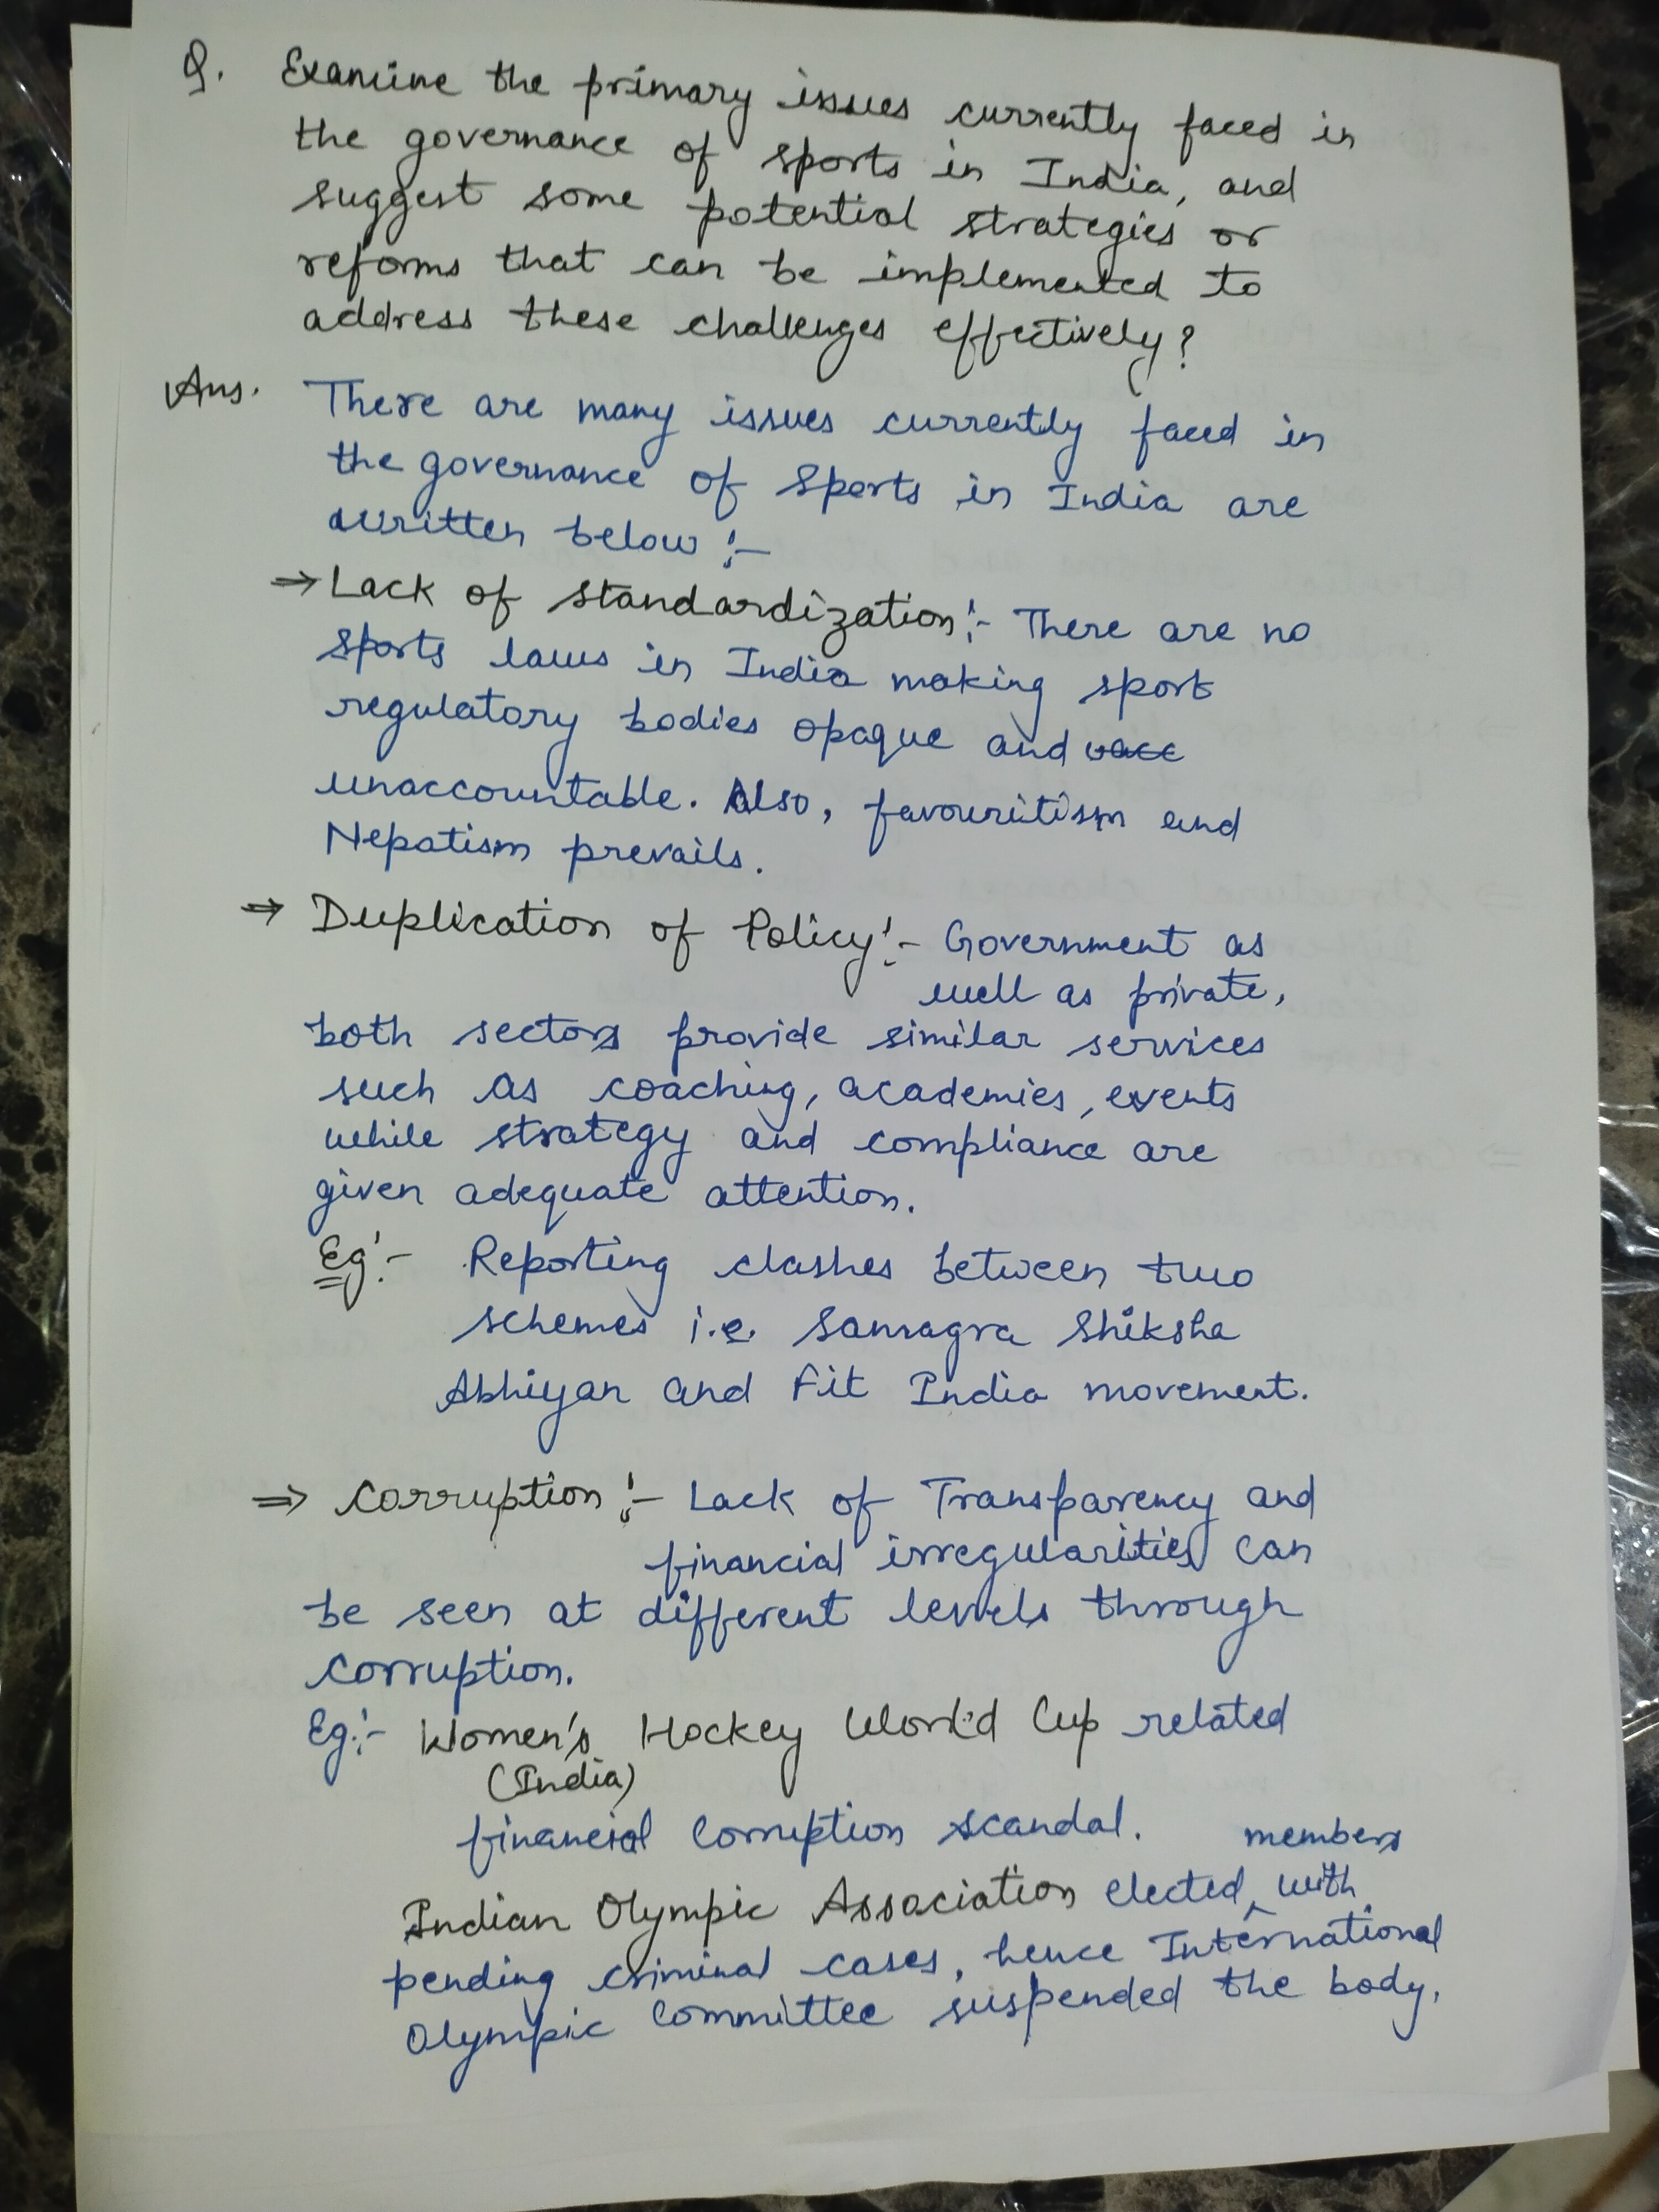 Q. Examine the primary issues currently faced in
the governance of sports in India, and
suggest some potential strategies or
reforms that can be implemented to
address these challenges effectively?
Ans. There are many issues currently faced in
the governance of Sports in India are
written below :-
⇒ Lack of standardization :- There are no
sports laws in India making sport
regulatory bodies opaque and
unaccountable. Also, favouritism and
Nepatism prevails.
⇒ Duplication of Policy :- Government as
well as private,
both sectors provide similar services
such as coaching, academies, events
while strategy and compliance are
given adequate attention.
Eg :- Reporting clashes between two
schemes i.e. Samagra Shiksha
Abhiyan and Fit India movement.
⇒ Corruption :- Lack of Transparency and
financial irregularities can
be seen at different levels through
corruption.
Eg :- Women's Hockey World Cup related
(India)
financial Corruption scandal.
members
Indian Olympic Association elected ^ with
pending criminal cases, hence International
Olympic Committee suspended the body.